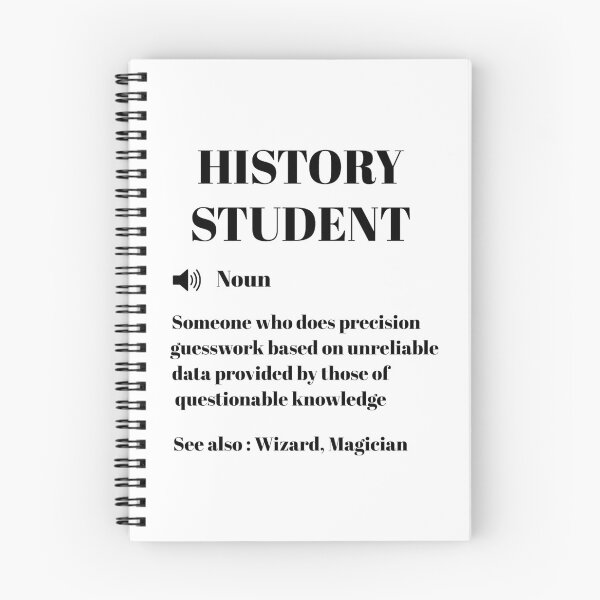 HISTORY
STUDENT
Noun
Someone who does precision
guesswork based on unreliable
data provided by those of
questionable knowledge
See also : Wizard, Magician